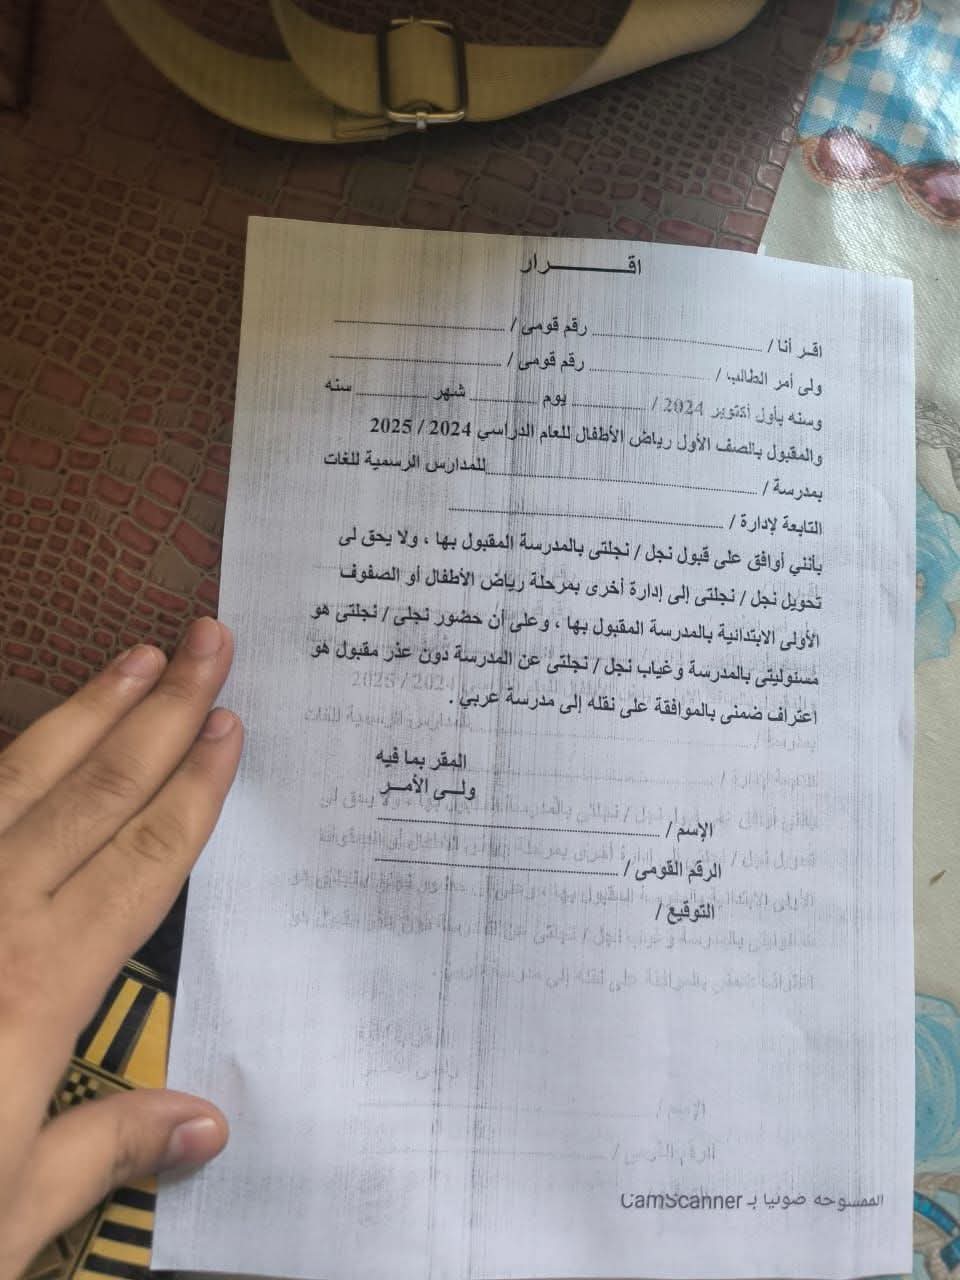 اقـــــــرار
اقـر أنا / .......................... رقم قومى / ..........................
ولى أمر الطالب / .................... رقم قومى / ..........................
وسنه بأول أكتوبر 2024 / ............ يوم ............ شهر ............ سنه
والمقبول بالصف الأول رياض الأطفال للعام الدراسي 2024 / 2025
بمدرسة / ........................................ للمدارس الرسمية للغات
التابعة لإدارة / ........................................
بأنني أوافق على قبول نجل / نجلتى بالمدرسة المقبول بها ، ولا يحق لى
تحويل نجل / نجلتى إلى إدارة أخرى بمرحلة رياض الأطفال أو الصفوف
الأولى الابتدائية بالمدرسة المقبول بها ، وعلى أن حضور نجلى / نجلتى هو
مسئوليتى بالمدرسة وغياب نجل / نجلتى عن المدرسة دون عذر مقبول هو
اعتراف ضمنى بالموافقة على نقله إلى مدرسة عربي .
المقر بما فيه
ولـى الأمـر
الإسم / ........................................
الرقم القومى / ........................................
التوقيع /
الممسوحه ضوئيا بـ CamScanner